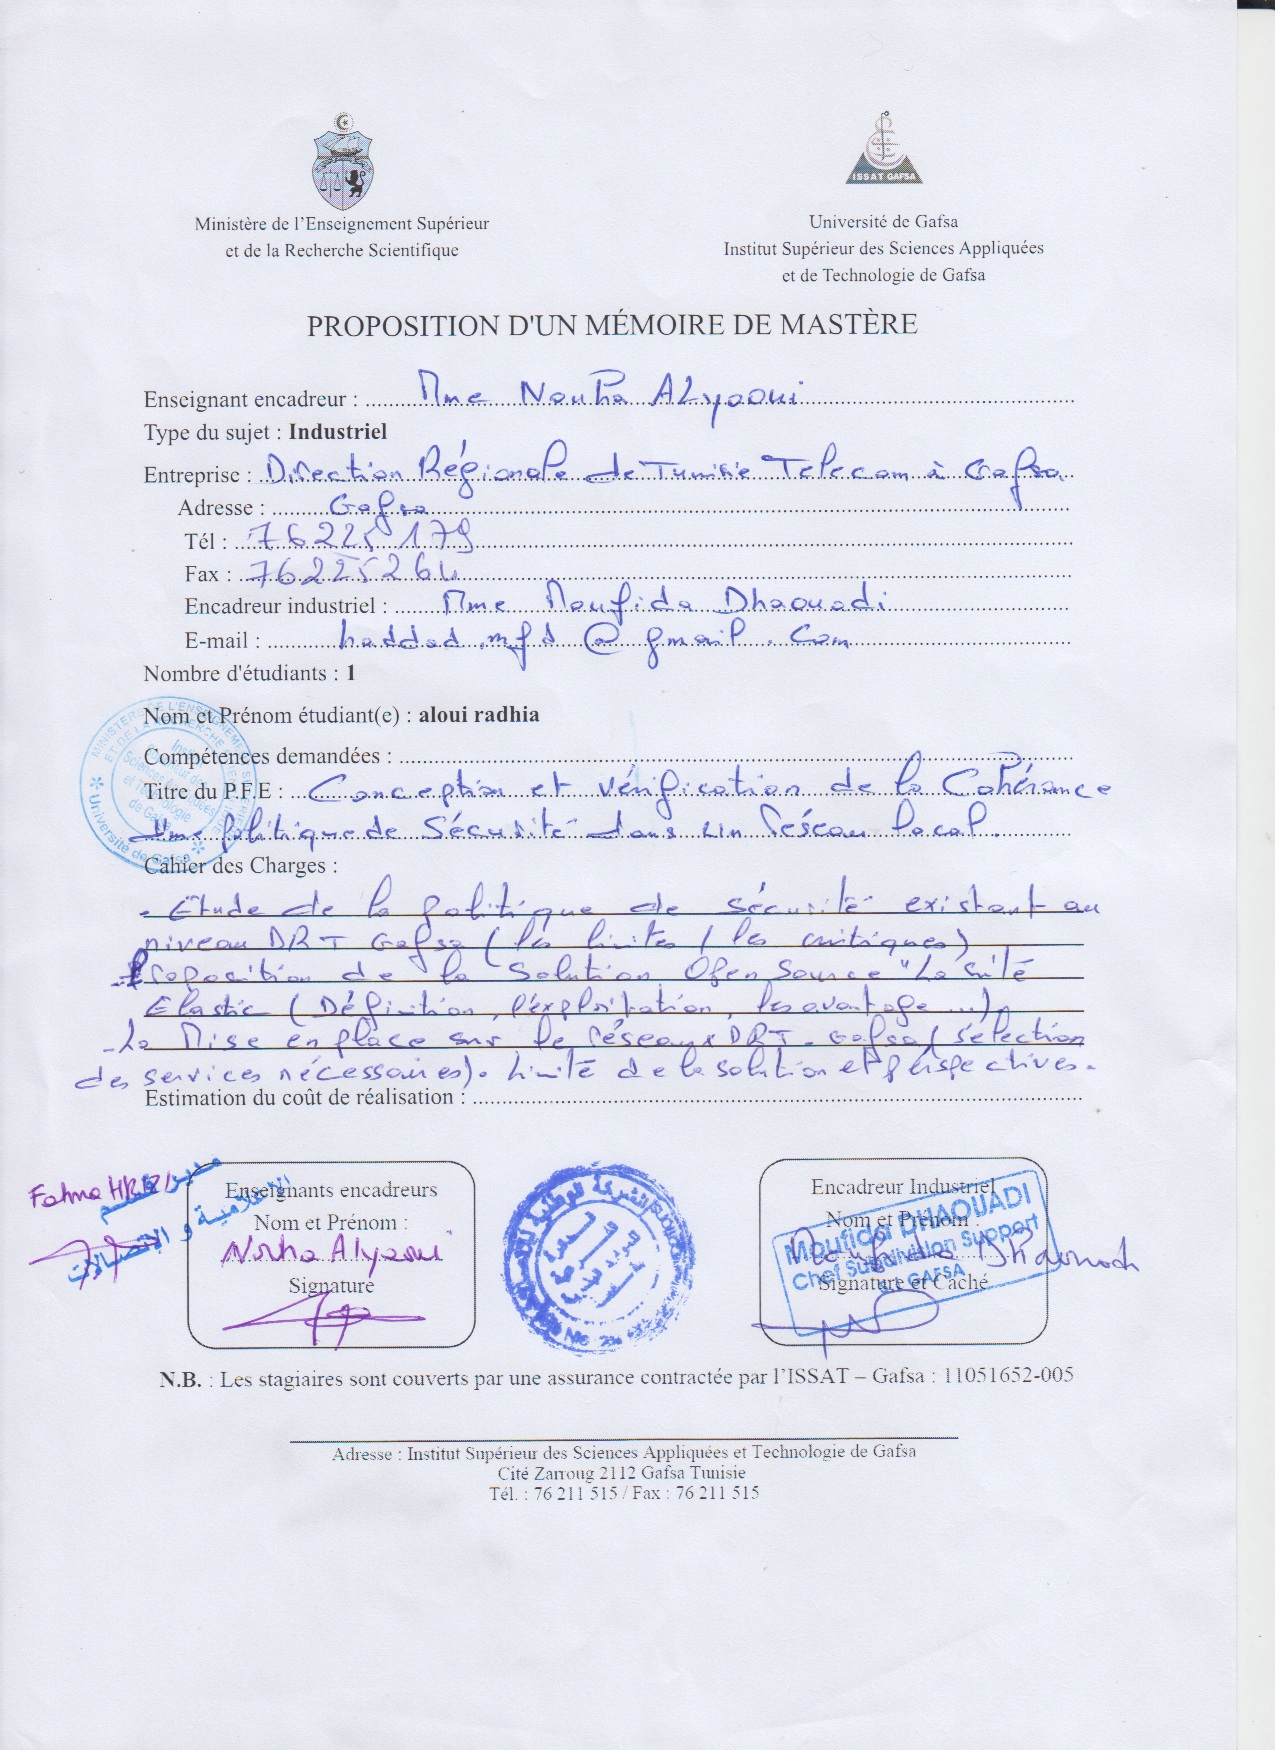 Ministère de l'Enseignement Supérieur
et de la Recherche Scientifique
ISSAT GAFSA
Université de Gafsa
Institut Supérieur des Sciences Appliquées
et de Technologie de Gafsa
PROPOSITION D'UN MÉMOIRE DE MASTÈRE
Enseignant encadreur : Mme Nouha ALyaoui
Type du sujet : Industriel
Entreprise : Direction Régionale de Tunisie Telecom à Gafsa
Adresse : Gafsa
Tél : 76225 179
Fax : 76225264
Encadreur industriel : Mme Moufida Dhaouadi
E-mail : haddad.mfd @ gmail . com
Nombre d'étudiants : 1
Nom et Prénom étudiant(e) : aloui radhia
Compétences demandées :
Titre du P.F.E : Conception et vérification de la Cohérance
d'une politique de Sécurité dans un réseau local.
Cahier des Charges :
- Etude de la politique de sécurité existant au
niveau DRT Gafsa (les limites / les critiques)
- Proposition de la Solution Open Source "La suite
Elastic (Définition, l'exploitation, les avantage ...)
- La Mise en place sur le réseaux DRT - Gafsa (sélection
des services nécessaires). Limite de la solution et perspectives.
Estimation du coût de réalisation :
Fatma
Enseignants encadreurs
Nom et Prénom :
Noha Alyaoui
Signature
Encadreur Industriel
Nom et Prénom :
Moufida Dhaouadi
Signature et Caché
Moufida DHAOUADI
Chef Subdivision Support
GAFSA
N.B. : Les stagiaires sont couverts par une assurance contractée par l'ISSAT – Gafsa : 11051652-005
Adresse : Institut Supérieur des Sciences Appliquées et Technologie de Gafsa
Cité Zarroug 2112 Gafsa Tunisie
Tél. : 76 211 515 / Fax : 76 211 515